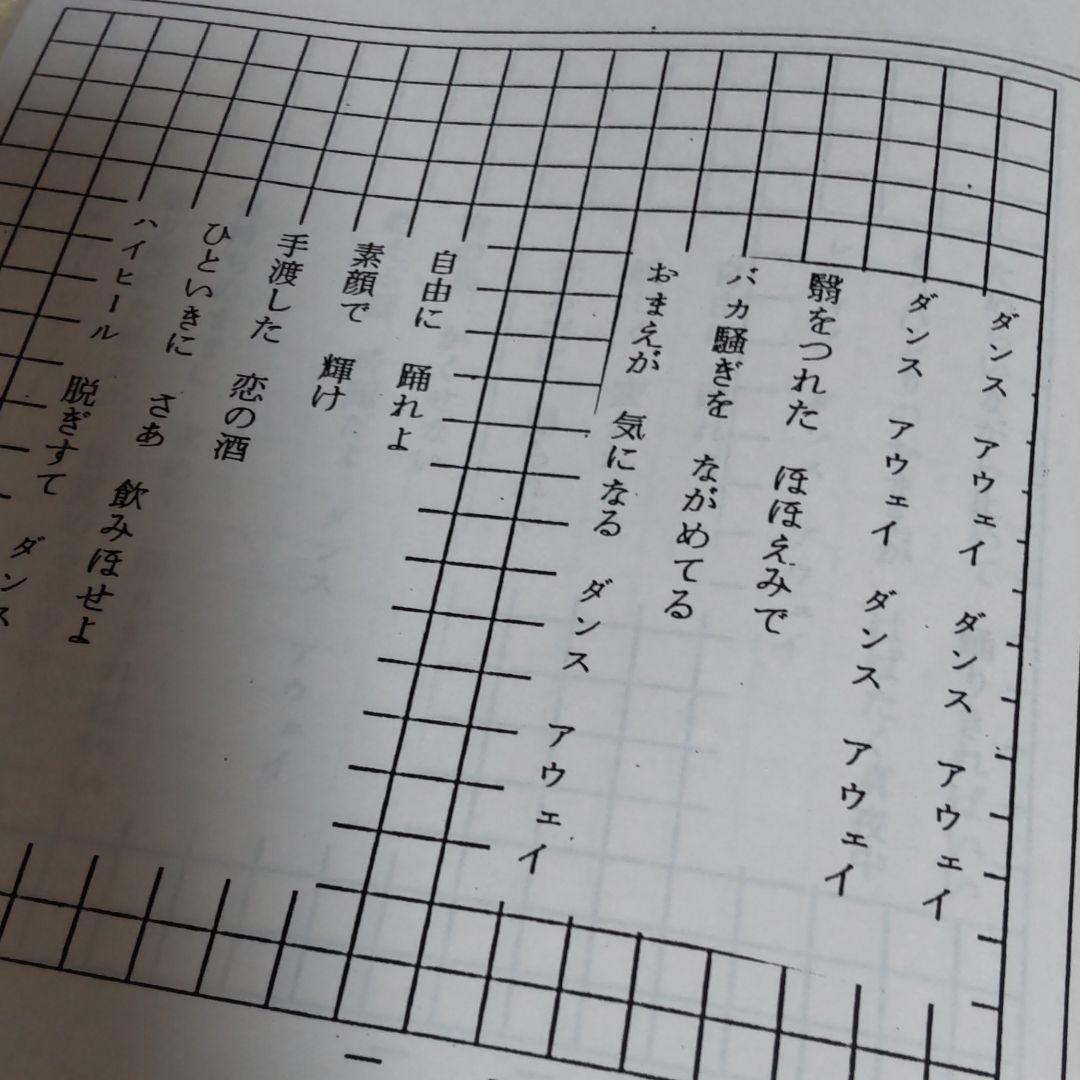 ダンス アウェイ ダンス アウェイ
ダンス アウェイ ダンス アウェイ
翳をつれた ほほえみで
バカ騒ぎを ながめてる
おまえが 気になる ダンス アウェイ
自由に 踊れよ
素顔で 輝け
手渡した 恋の酒
ひといきに さあ 飲みほせよ
ハイヒール 脱ぎすて ダンス